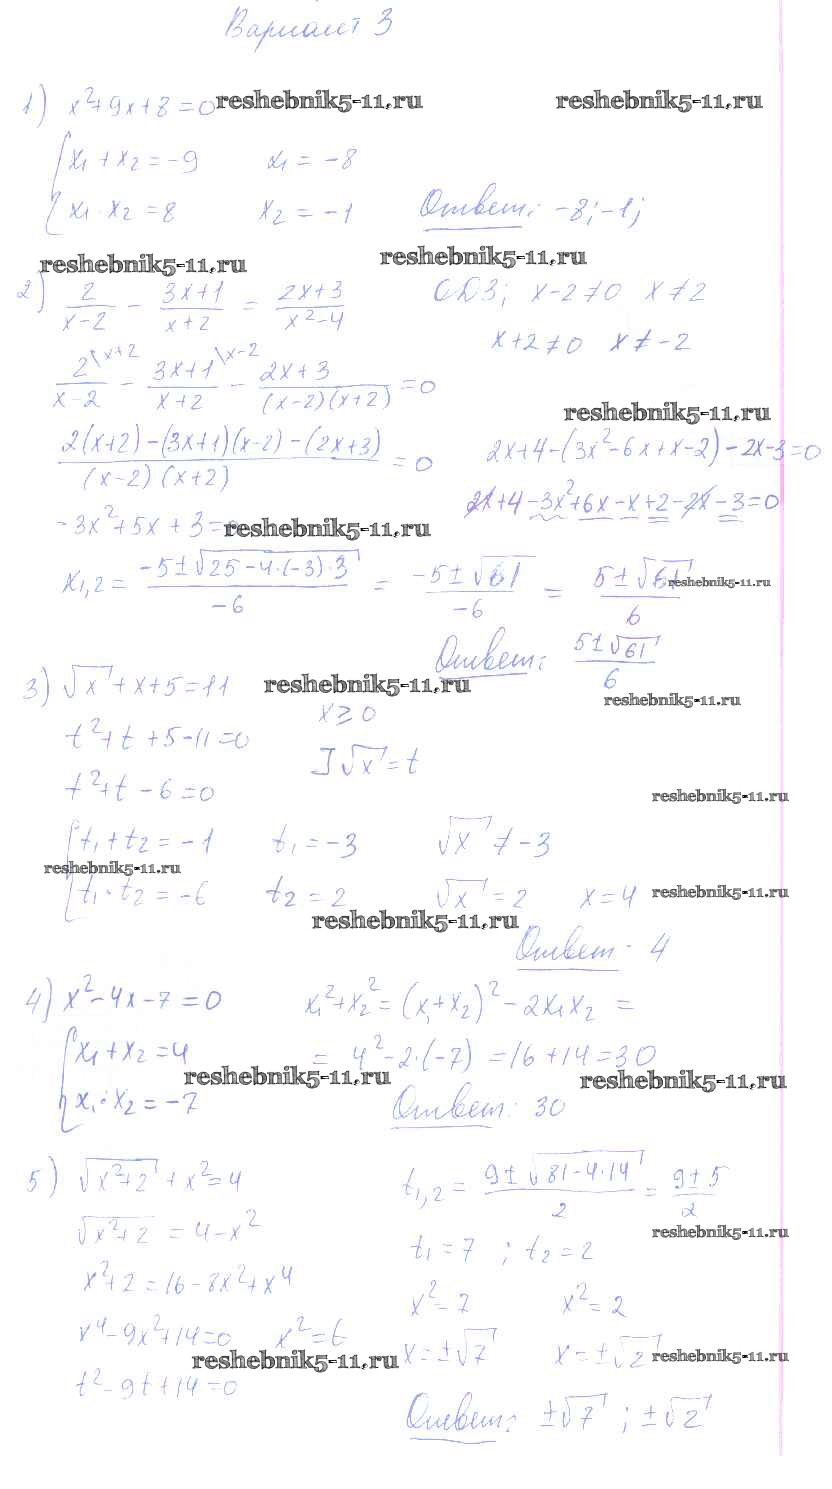 Вариант 3
1) x²+9x+8=0 reshebnik5-11.ru reshebnik5-11.ru
x₁+x₂=-9 x₁=-8
x₁·x₂=8 x₂=-1 Ответ: -8; -1;
reshebnik5-11.ru reshebnik5-11.ru
2) 2/(x-2) - (3x+1)/(x+2) = (2x+3)/(x²-4) ОДЗ; x-2≠0 x≠2
x+2≠0 x≠-2
2\x+2/(x-2) - 3x+1\x-2/(x+2) - (2x+3)/((x-2)(x+2)) =0
reshebnik5-11.ru
(2(x+2)-(3x+1)(x-2)-(2x+3))/((x-2)(x+2)) =0 2x+4-(3x²-6x+x-2)-2x-3=0
2x+4-3x²+6x-x+2-2x-3=0
-3x²+5x+3=0 reshebnik5-11.ru
x₁,₂= (-5±√(25-4·(-3)·3))/(-6) = (-5±√61)/(-6) = (5±√61)/6 reshebnik5-11.ru
Ответ: (5±√61)/6
3) √x+x+5=11 reshebnik5-11.ru
reshebnik5-11.ru
x≥0
t²+t+5-11=0
] √x=t
t²+t-6=0 reshebnik5-11.ru
t₁+t₂=-1 t₁=-3 √x≠-3
reshebnik5-11.ru
t₁·t₂=-6 t₂=2 √x=2 x=4 reshebnik5-11.ru
reshebnik5-11.ru
Ответ: 4
4) x²-4x-7=0 x₁²+x₂²=(x₁+x₂)²-2x₁x₂=
x₁+x₂=4 = 4²-2·(-7)=16+14=30
reshebnik5-11.ru reshebnik5-11.ru
x₁·x₂=-7 Ответ: 30
5) √(x²+2)+x²=4 t₁,₂= (9±√(81-4·14))/2 = (9±5)/2
√(x²+2)=4-x² reshebnik5-11.ru
t₁=7; t₂=2
x²+2=16-8x²+x⁴
x²=7 x²=2
x⁴-9x²+14=0 x²=t
reshebnik5-11.ru x=±√7 x=±√2 reshebnik5-11.ru
t²-9t+14=0
Ответ: ±√7; ±√2